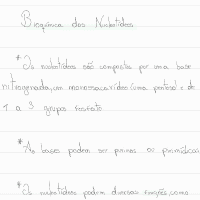 Bioquímica dos Nucleotídeos
* Os nucleotídeos são compostos por uma base
nitrogenada, um monossacarídeo (uma pentose) e de
1 a 3 grupos fosfato
* As bases podem ser purinas ou pirimídicas
* Os nucleotídeos podem diversas funções, como